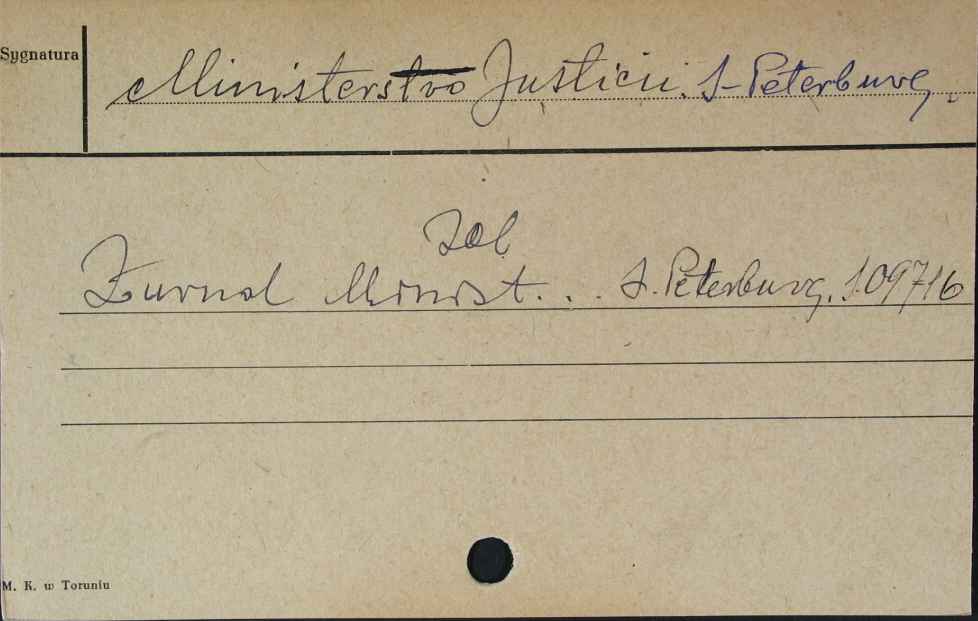 Sygnatura
Ministerstvo Justicii. S-Peterburg.
Zob
Žurnal Minist. . . S. Peterburg. S.09716
M. K. w Toruniu